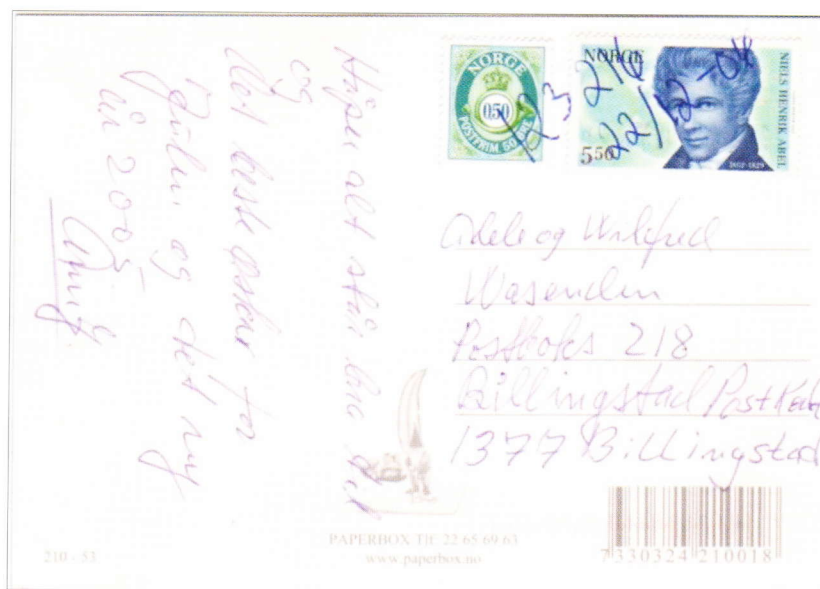 Håper alt står bra til
og
det beste ønsker for
Julen og det ny
år 2005
NORGE
0,50
POSTFRIM. 50 ØRE
NORGE
5,50
NIELS HENRIK ABEL
1802-1829
22/12-04
Adele og Wilfred
Wasenden
Postboks 218
Billingstad Post
1377 Billingstad
210 - 53
PAPERBOX Tlf: 22 65 69 63
www.paperbox.no
7 330324 210018